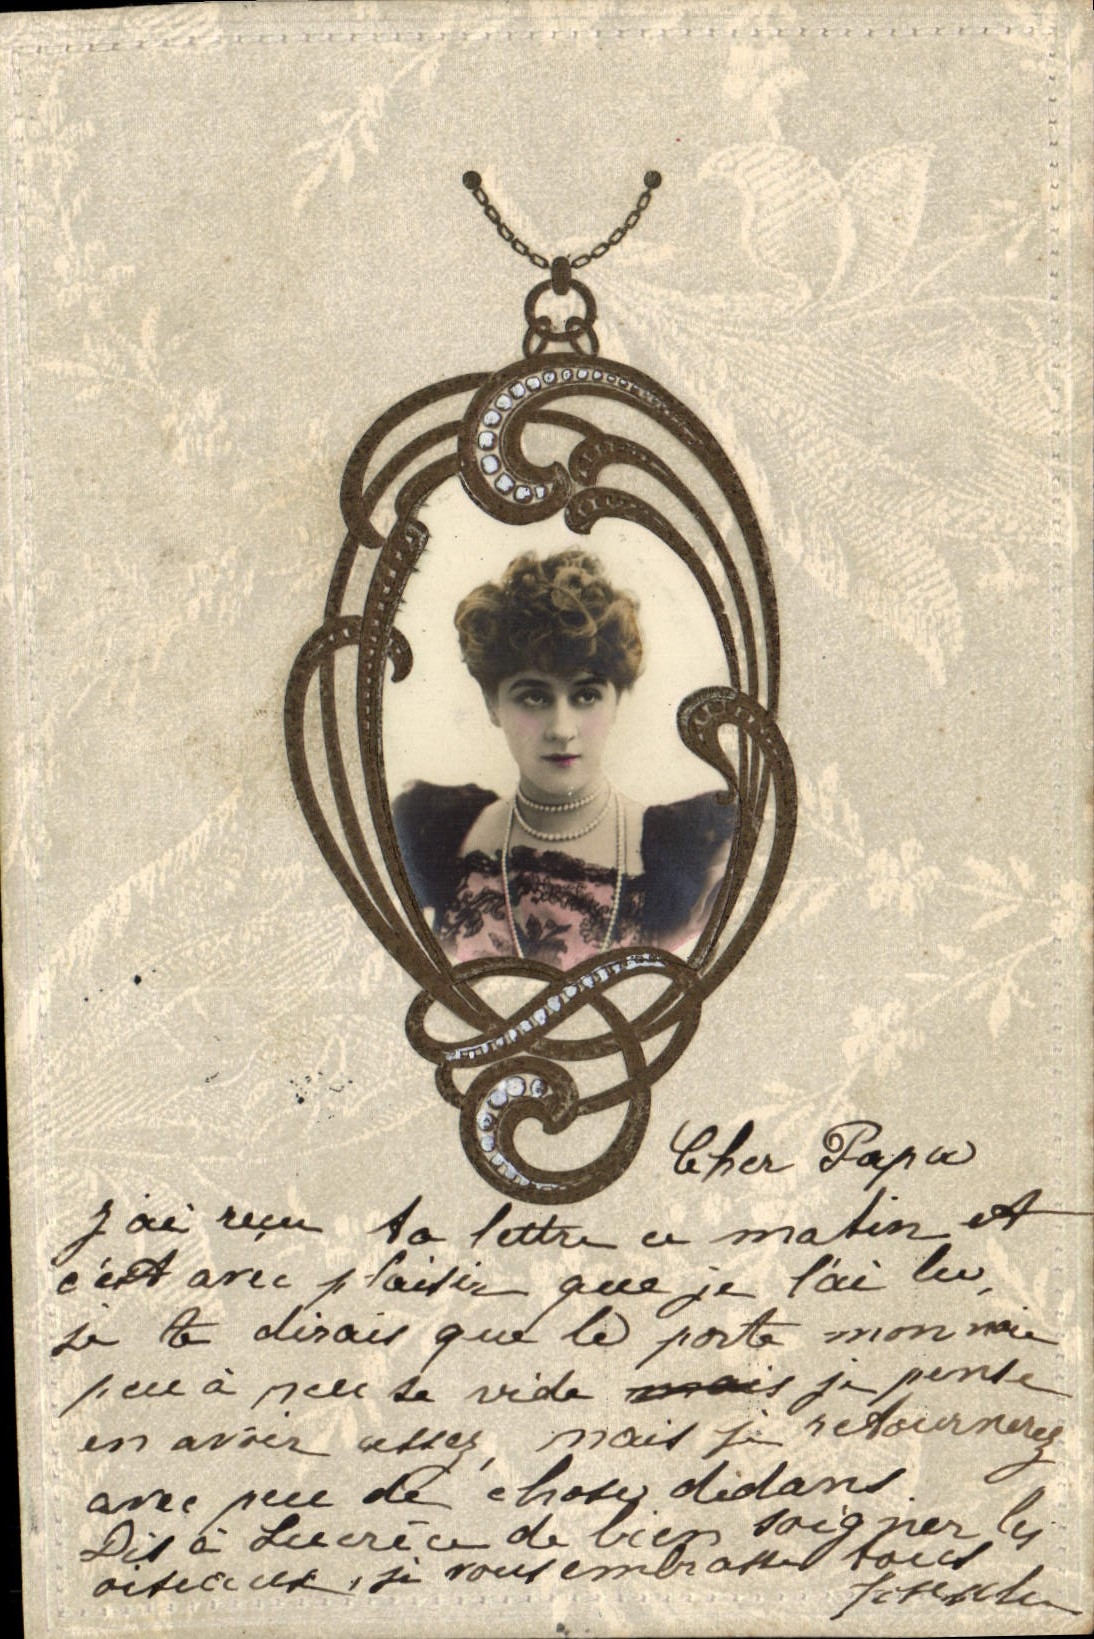 Cher Papa
J'ai reçu ta lettre ce matin et
c'est avec plaisir que je l'ai lu,
je te dirais que le porte monnaie
peu à peu se vide mais je pense
en avoir assez, mais je retournerez
avec peu de chose dedans
Dis à Lucrèce de bien soigner les
oiseaux, je vous embrasse tous